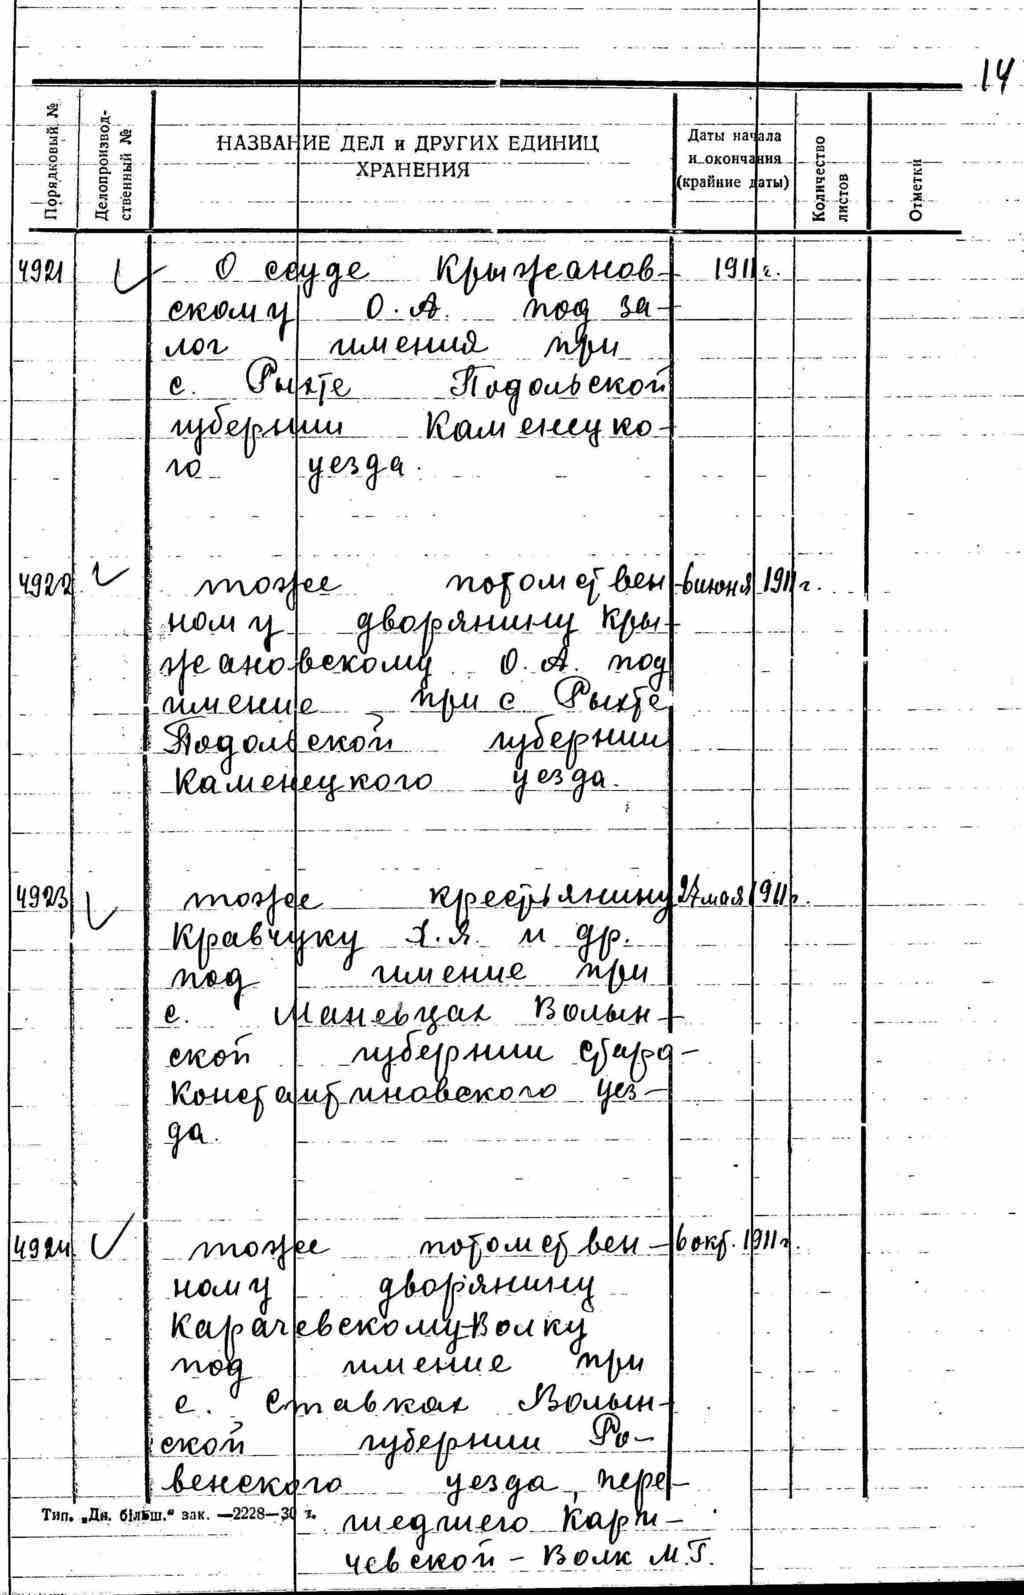 14
Порядковый №
Делопроизвод-
ственный №
НАЗВАНИЕ ДЕЛ и ДРУГИХ ЕДИНИЦ
ХРАНЕНИЯ
Даты начала
и окончания
(крайние даты)
Количество
листов
Отметки
4921 О ссуде Крыжанов- 1911 г.
скому О.А. под за-
лог имения при
с. Рыхте Подольской
губернии Каменецко-
го уезда.
4922 тоже потомствен- 6 июня 1911 г.
ному дворянину Кры-
жановскому О.А. под
имение при с Рыхте
Подольской губернии
Каменецкого уезда.
4923 тоже крестьянину 27 мая 1911 г.
Кравчуку Х.Я. и др.
под имение при
с. Маневцах Волын-
ской губернии Старо-
Константиновского уез-
да.
4924 тоже потомствен- 6 окт. 1911 г.
ному дворянину
Карачевскому-Волку
под имение при
с. Ставках Волын-
ской губернии Ро-
венского уезда, пере-
шедшего Кара-
чевской-Волк М.Г.
Тип. „Дн. більш." зак. —2228—30 г.